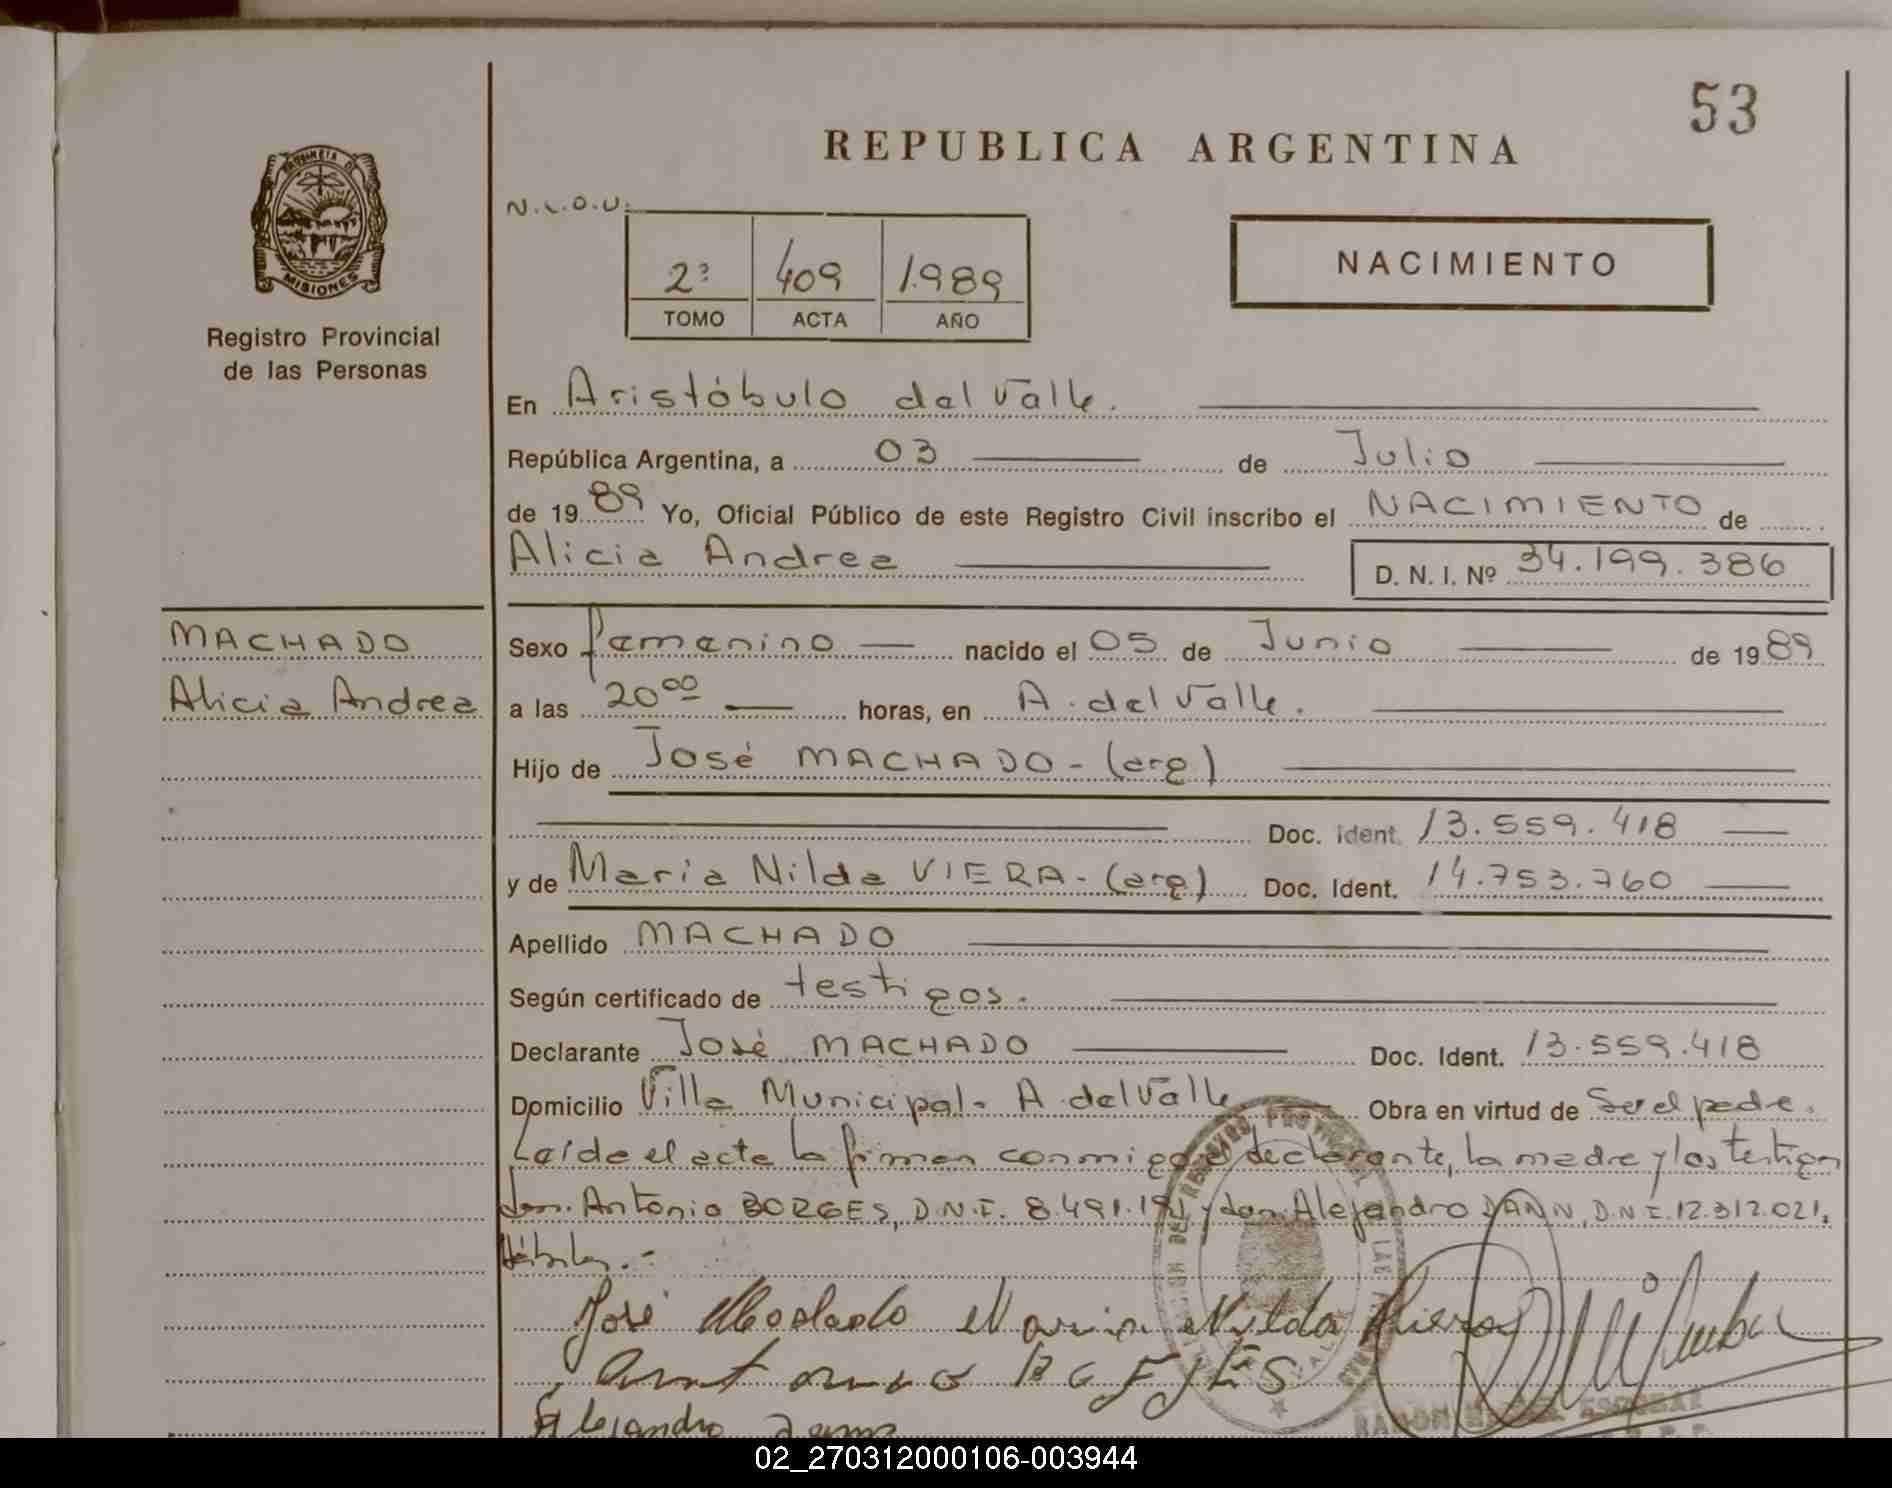 53
REPUBLICA ARGENTINA
PROVINCIA DE
MISIONES
Registro Provincial
de las Personas
N.L.O.U.
2ª 409 1.989
TOMO ACTA AÑO
NACIMIENTO
En Aristóbulo del Valle.
República Argentina, a 03 de Julio
de 1989 Yo, Oficial Público de este Registro Civil inscribo el NACIMIENTO de
Alicia Andrea D. N. I. Nº 34.199.386
MACHADO
Alicia Andrea
Sexo femenino nacido el 05 de Junio de 1989
a las 20⁰⁰ horas, en A. del Valle.
Hijo de José MACHADO - (arg)
Doc. Ident. 13.559.418
y de Maria Nilda VIERA - (arg) Doc. Ident. 14.753.760
Apellido MACHADO
Según certificado de testigos.
Declarante José MACHADO Doc. Ident. 13.559.418
Domicilio Villa Municipal - A. del Valle Obra en virtud de Ser el padre.
Leída el acta la firman conmigo el declarante, la madre y los testigos
don Antonio BORGES, D.N.I. 8.491.191 y don Alejandro DANN, D.N.I. 12.312.021,
Hábiles.-
José Machado Maria Nilda Viera
Antonio
Alejandro Dann
02_270312000106-003944